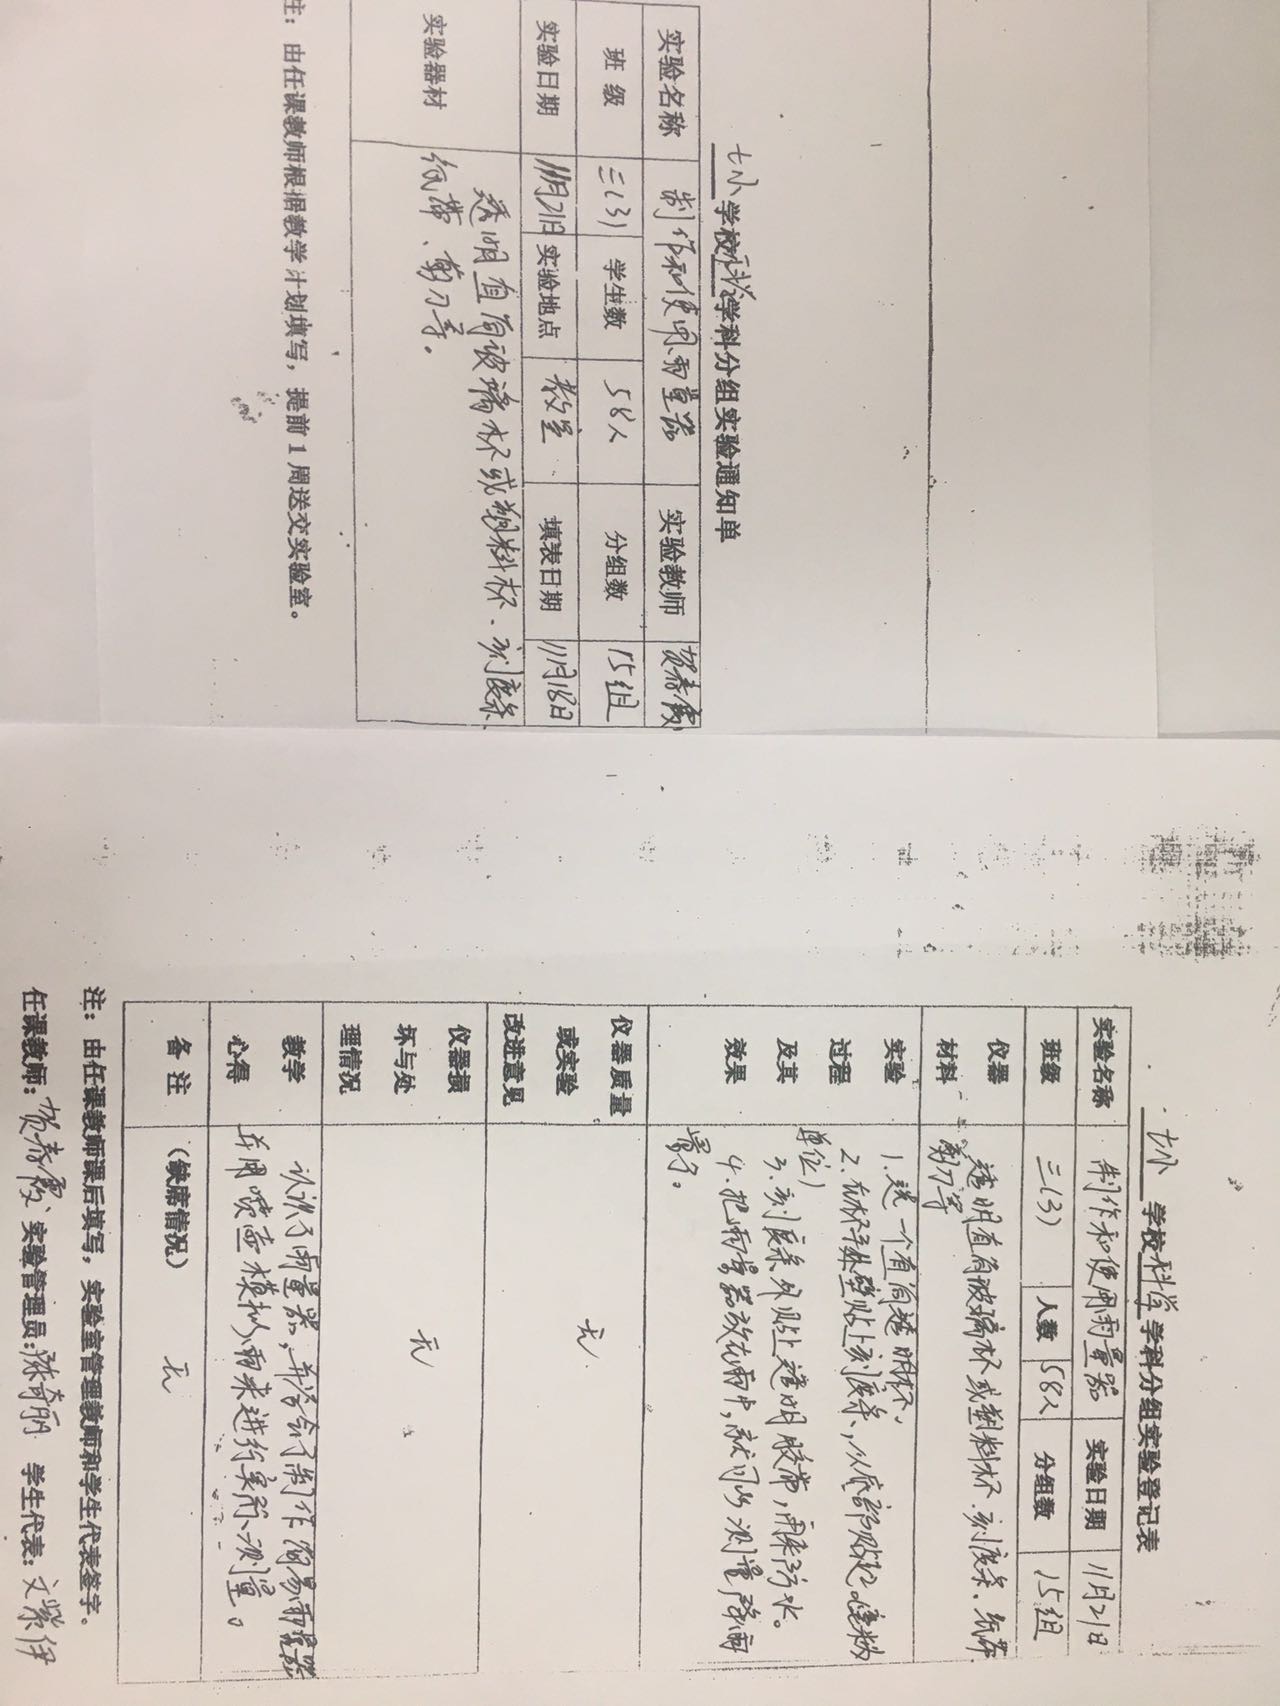 七小学校科学学科分组实验通知单
实验名称 制作和使用雨量器 实验教师 贺春霞
班 级 三(3) 学生数 58人 分组数 15组
实验日期 11月21日 实验地点 教室 填表日期 11月18日
实验器材 透明直筒玻璃杯或塑料杯、刻度条
纸带、剪刀等。
注：由任课教师根据教学计划填写，提前1周送交实验室。
七小 学校科学学科分组实验登记表
实验名称 制作和使用雨量器 实验日期 11月21日
班级 三(3) 人数 58人 分组数 15组
仪器 透明直筒玻璃杯或塑料杯、刻度条、纸带
材料 剪刀等
实验 1.选一个直筒透明杯、
过程 2.在杯子外壁贴上刻度条,(从底部贴起,毫米为
单位)
及其 3.刻度条外贴上透明胶带,用来防水。
效果 4.把雨量器放在雨中,就可以测量降雨
量了。
仪器质量
或实验 无
改进意见
仪器损
坏与处 无
理情况
教学 认识了雨量器,并学会了制作简易雨量器
心得 并用喷壶模拟下雨来进行实际测量。
备 注 （缺席情况） 无
注：由任课教师课后填写，实验室管理教师和学生代表签字。
任课教师：贺春霞、实验管理员：陈奇丽 学生代表：文紫伊